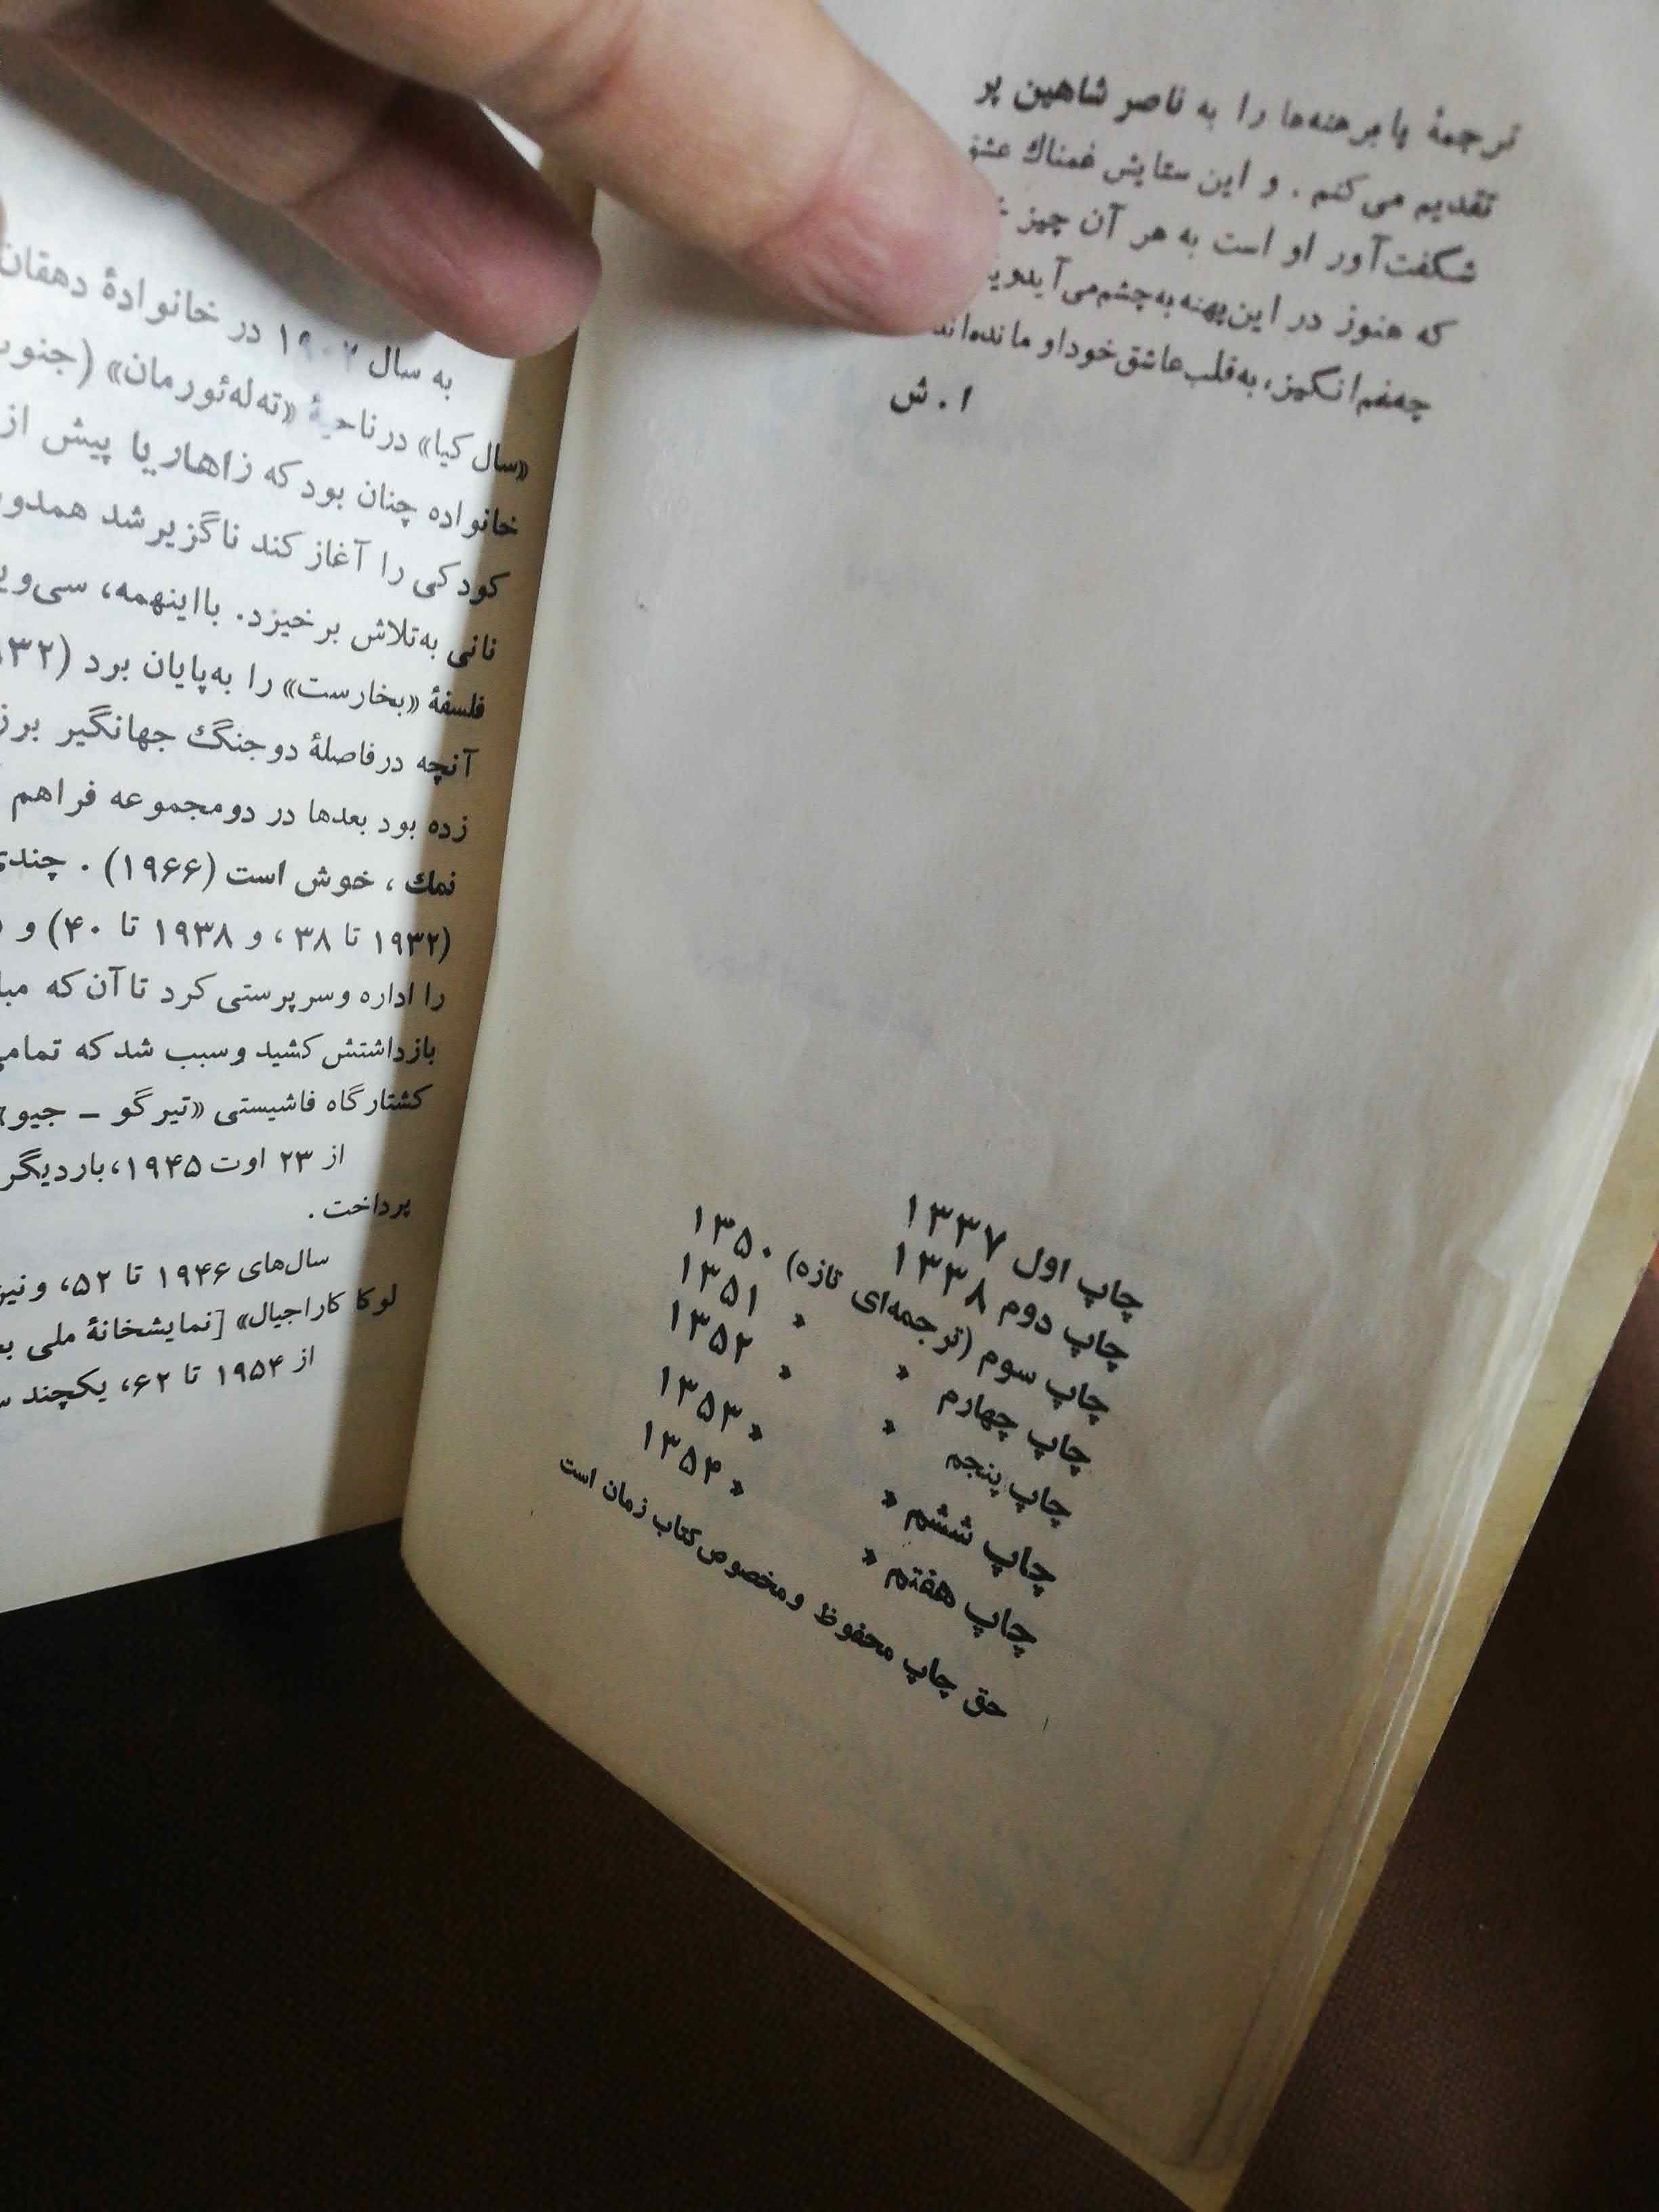 ترجمهٔ پابرهنه‌ها را به ناصر شاهین پر
تقدیم می‌کنم . و این ستایش غمناك عشق
شگفت‌آور او است به هر آن چیز
که هنوز در این پهنه به‌چشم‌می‌آیدو
چه‌غم‌انگیز، به‌قلب‌عاشق‌خوداو مانده‌اند
ا . ش
چاپ اول ۱۳۳۷
چاپ دوم ۱۳۳۸
چاپ سوم (ترجمه‌ای تازه) ۱۳۵۰
چاپ چهارم » » ۱۳۵۱
چاپ پنجم » » ۱۳۵۲
چاپ ششم » » ۱۳۵۳
چاپ هفتم » » ۱۳۵۴
حق چاپ محفوظ ومخصوص کتاب زمان است
به سال ۱۹۰۲ در خانوادهٔ دهقان
«سال کیا» درناحیهٔ «ته‌له‌ئورمان» (جنوب
خانواده چنان بود که زاهاریا پیش از
کودکی را آغاز کند ناگزیر شد همدو
نانی به‌تلاش برخیزد. بااینهمه، سی‌و
فلسفهٔ «بخارست» را به‌پایان برد (۳۲
آنچه درفاصلهٔ دوجنگ جهانگیر بر
زده بود بعدها در دومجموعه فراهم
نمك ، خوش است (۱۹۶۶) . چند
(۱۹۳۲ تا ۳۸ ، و ۱۹۳۸ تا ۴۰) و
را اداره وسرپرستی کرد تا آن که مبا
بازداشتش کشید وسبب شد که تمام
کشتارگاه فاشیستی «تیرگو – جیو»
از ۲۳ اوت ۱۹۴۵، باردیگر
پرداخت .
سال‌های ۱۹۴۶ تا ۵۲، ونیز
لوکا کاراجیال» [نمایشخانهٔ ملی
از ۱۹۵۴ تا ۶۲، یکچند